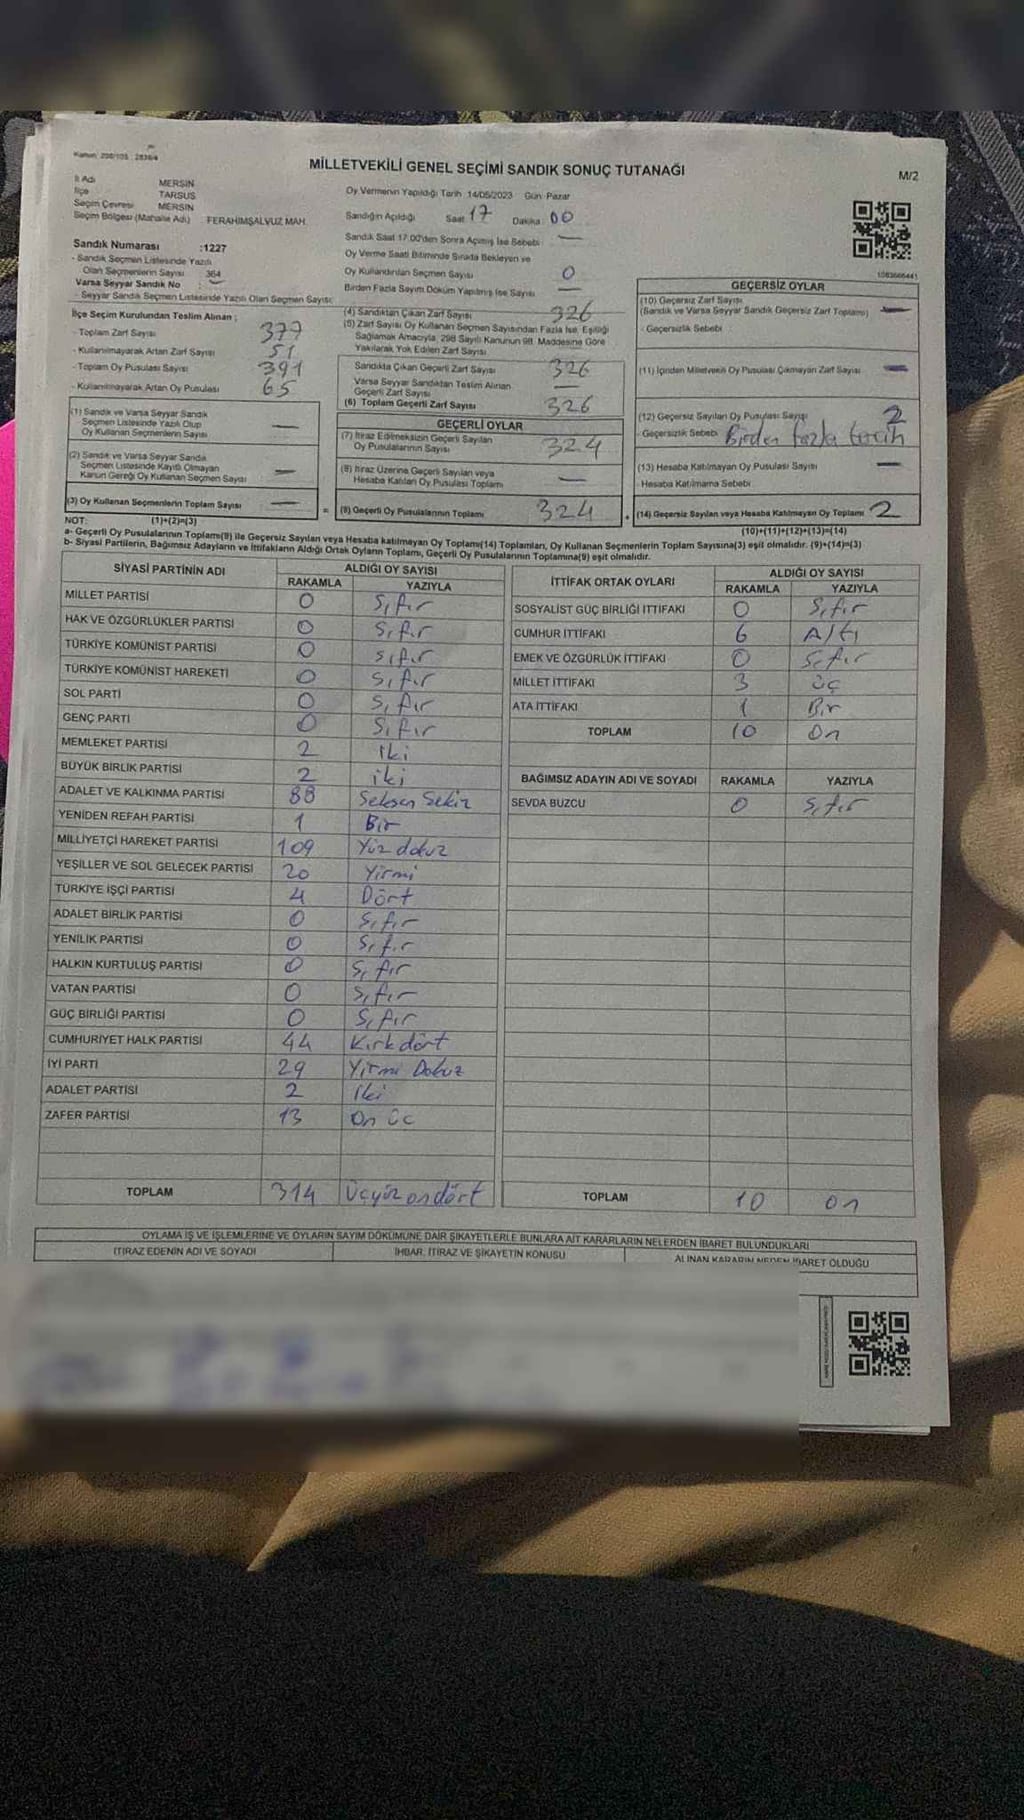 MİLLETVEKİLİ GENEL SEÇİMİ SANDIK SONUÇ TUTANAĞI
M/2
İl Adı MERSİN
İlçe TARSUS
Seçim Çevresi MERSİN
Seçim Bölgesi (Mahalle Adı) FERAHİMŞALVUZ MAH.
Sandık Numarası :1227
- Sandık Seçmen Listesinde Yazılı
Olan Seçmenlerin Sayısı 364
Varsa Seyyar Sandık No
- Seyyar Sandık Seçmen Listesinde Yazılı Olan Seçmen Sayısı:
Oy Vermenin Yapıldığı Tarih 14/05/2023 Gün Pazar
Sandığın Açıldığı Saat 17 Dakika 00
Sandık Saat 17:00'den Sonra Açılmış İse Sebebi —
Oy Verme Saati Bitiminde Sırada Bekleyen ve
Oy Kullandırılan Seçmen Sayısı 0
Birden Fazla Sayım Döküm Yapılmış İse Sayısı —
1083666441
İlçe Seçim Kurulundan Teslim Alınan ;
- Toplam Zarf Sayısı 377
- Kullanılmayarak Artan Zarf Sayısı 51
- Toplam Oy Pusulası Sayısı 391
- Kullanılmayarak Artan Oy Pusulası 65
(1) Sandık ve Varsa Seyyar Sandık
Seçmen Listesinde Yazılı Olup
Oy Kullanan Seçmenlerin Sayısı —
(2) Sandık ve Varsa Seyyar Sandık
Seçmen Listesinde Kayıtlı Olmayan
Kanun Gereği Oy Kullanan Seçmen Sayısı —
(3) Oy Kullanan Seçmenlerin Toplam Sayısı —
(4) Sandıktan Çıkan Zarf Sayısı 326
(5) Zarf Sayısı Oy Kullanan Seçmen Sayısından Fazla İse, Eşitliği
Sağlamak Amacıyla, 298 Sayılı Kanunun 98. Maddesine Göre
Yakılarak Yok Edilen Zarf Sayısı
Sandıkta Çıkan Geçerli Zarf Sayısı 326
Varsa Seyyar Sandıktan Teslim Alınan
Geçerli Zarf Sayısı —
(6) Toplam Geçerli Zarf Sayısı 326
GEÇERLİ OYLAR
(7) İtiraz Edilmeksizin Geçerli Sayılan
Oy Pusulalarının Sayısı 324
(8) İtiraz Üzerine Geçerli Sayılan veya
Hesaba Katılan Oy Pusulası Toplamı —
= (9) Geçerli Oy Pusulalarının Toplamı 324
GEÇERSİZ OYLAR
(10) Geçersiz Zarf Sayısı
(Sandık ve Varsa Seyyar Sandık Geçersiz Zarf Toplamı) —
- Geçersizlik Sebebi
(11) İçinden Milletvekili Oy Pusulası Çıkmayan Zarf Sayısı —
(12) Geçersiz Sayılan Oy Pusulası Sayısı 2
- Geçersizlik Sebebi Birden fazla tercih
(13) Hesaba Katılmayan Oy Pusulası Sayısı —
- Hesaba Katılmama Sebebi
+ (14) Geçersiz Sayılan veya Hesaba Katılmayan Oy Toplamı 2
NOT: (1)+(2)=(3)
(10)+(11)+(12)+(13)=(14)
a- Geçerli Oy Pusulalarının Toplamı(9) ile Geçersiz Sayılan veya Hesaba katılmayan Oy Toplam(14) Toplamları, Oy Kullanan Seçmenlerin Toplam Sayısına(3) eşit olmalıdır. (9)+(14)=(3)
b- Siyasi Partilerin, Bağımsız Adayların ve İttifakların Aldığı Ortak Oyların Toplamı, Geçerli Oy Pusulalarının Toplamına(9) eşit olmalıdır.
SİYASİ PARTİNİN ADI ALDIĞI OY SAYISI
RAKAMLA YAZIYLA
MİLLET PARTİSİ 0 Sıfır
HAK VE ÖZGÜRLÜKLER PARTİSİ 0 Sıfır
TÜRKİYE KOMÜNİST PARTİSİ 0 sıfır
TÜRKİYE KOMÜNİST HAREKETİ 0 Sıfır
SOL PARTİ 0 Sıfır
GENÇ PARTİ 0 Sıfır
MEMLEKET PARTİSİ 2 İki
BÜYÜK BİRLİK PARTİSİ 2 iki
ADALET VE KALKINMA PARTİSİ 88 Seksen Sekiz
YENİDEN REFAH PARTİSİ 1 Bir
MİLLİYETÇİ HAREKET PARTİSİ 109 Yüz dokuz
YEŞİLLER VE SOL GELECEK PARTİSİ 20 Yirmi
TÜRKİYE İŞÇİ PARTİSİ 4 Dört
ADALET BİRLİK PARTİSİ 0 Sıfır
YENİLİK PARTİSİ 0 Sıfır
HALKIN KURTULUŞ PARTİSİ 0 Sıfır
VATAN PARTİSİ 0 Sıfır
GÜÇ BİRLİĞİ PARTİSİ 0 Sıfır
CUMHURİYET HALK PARTİSİ 44 Kırk dört
İYİ PARTİ 29 Yirmi Dokuz
ADALET PARTİSİ 2 İki
ZAFER PARTİSİ 13 On üç
TOPLAM 314 Üçyüz ondört
İTTİFAK ORTAK OYLARI ALDIĞI OY SAYISI
RAKAMLA YAZIYLA
SOSYALİST GÜÇ BİRLİĞİ İTTİFAKI 0 Sıfır
CUMHUR İTTİFAKI 6 Altı
EMEK VE ÖZGÜRLÜK İTTİFAKI 0 Sıfır
MİLLET İTTİFAKI 3 üç
ATA İTTİFAKI 1 Bir
TOPLAM 10 On
BAĞIMSIZ ADAYIN ADI VE SOYADI RAKAMLA YAZIYLA
SEVDA BUZCU 0 Sıfır
TOPLAM 10 on
OYLAMA İŞ VE İŞLEMLERİNE VE OYLARIN SAYIM DÖKÜMÜNE DAİR ŞİKAYETLERLE BUNLARA AİT KARARLARIN NELERDEN İBARET BULUNDUKLARI
İTİRAZ EDENİN ADI VE SOYADI İHBAR, İTİRAZ VE ŞİKAYETİN KONUSU ALINAN KARARIN NEDEN İBARET OLDUĞU